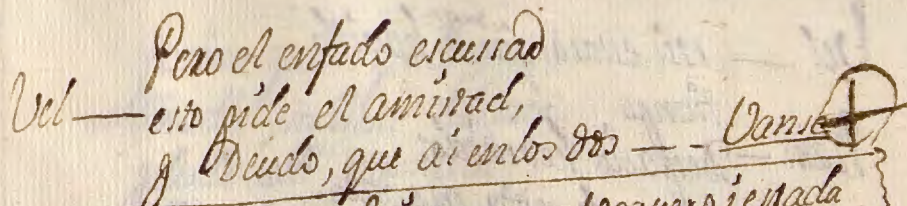 Pero el enfado escussad
Vel — esto pide el amistad,
y Deudo, que ai en los dos — - Vanse